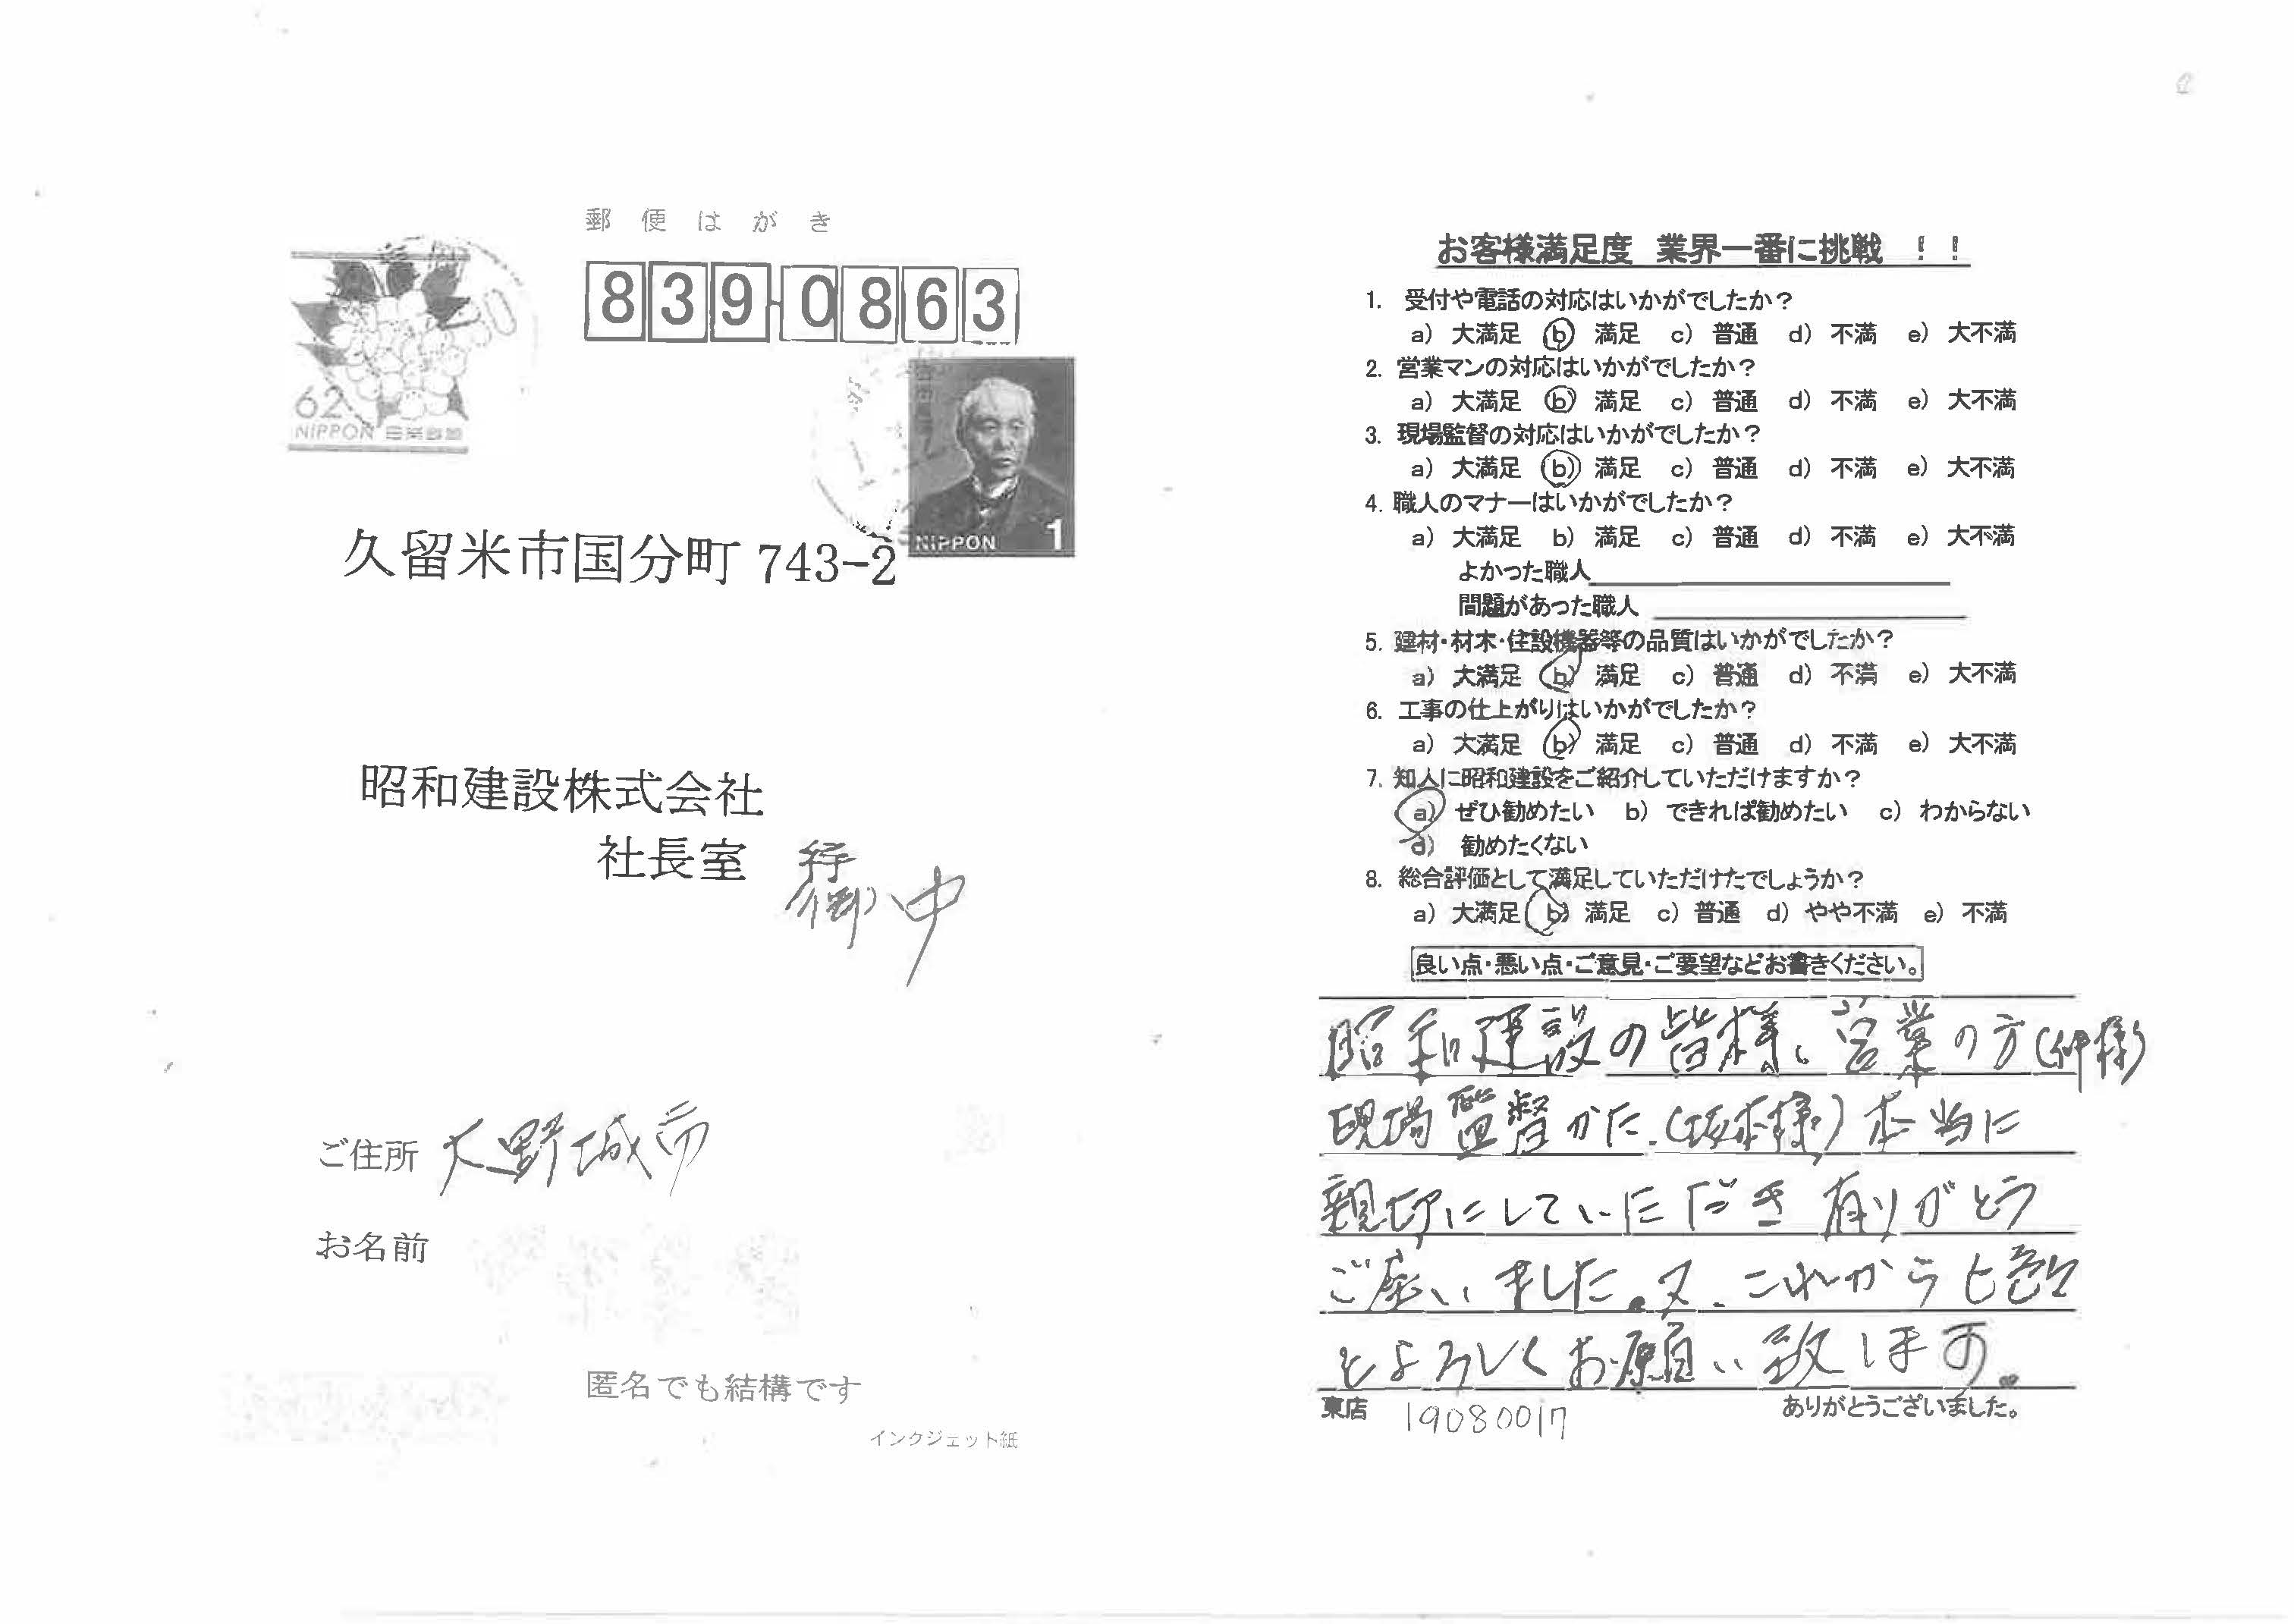 郵便はがき
839-0863
62
NIPPON 日本郵便
NIPPON 1
久留米市国分町 743-2
昭和建設株式会社
社長室 行
御中
ご住所 大野城市
お名前
匿名でも結構です
インクジェット紙
お客様満足度 業界一番に挑戦 !!
1. 受付や電話の対応はいかがでしたか?
a) 大満足 b) 満足 c) 普通 d) 不満 e) 大不満
2. 営業マンの対応はいかがでしたか?
a) 大満足 b) 満足 c) 普通 d) 不満 e) 大不満
3. 現場監督の対応はいかがでしたか?
a) 大満足 b) 満足 c) 普通 d) 不満 e) 大不満
4. 職人のマナーはいかがでしたか?
a) 大満足 b) 満足 c) 普通 d) 不満 e) 大不満
よかった職人
問題があった職人
5. 建材・材木・住設機器等の品質はいかがでしたか?
a) 大満足 b) 満足 c) 普通 d) 不満 e) 大不満
6. 工事の仕上がりはいかがでしたか?
a) 大満足 b) 満足 c) 普通 d) 不満 e) 大不満
7. 知人に昭和建設をご紹介していただけますか?
a) ぜひ勧めたい b) できれば勧めたい c) わからない
d) 勧めたくない
8. 総合評価として満足していただけたでしょうか?
a) 大満足 b) 満足 c) 普通 d) やや不満 e) 不満
良い点・悪い点・ご意見・ご要望などお書きください。
昭和建設の皆様、営業の方(様)
現場監督かた.(坂本様)本当に
親切にしていただき有りがとう
ご座いました。又、これからも
とよろしくお願い致します。
東店 19080017 ありがとうございました。